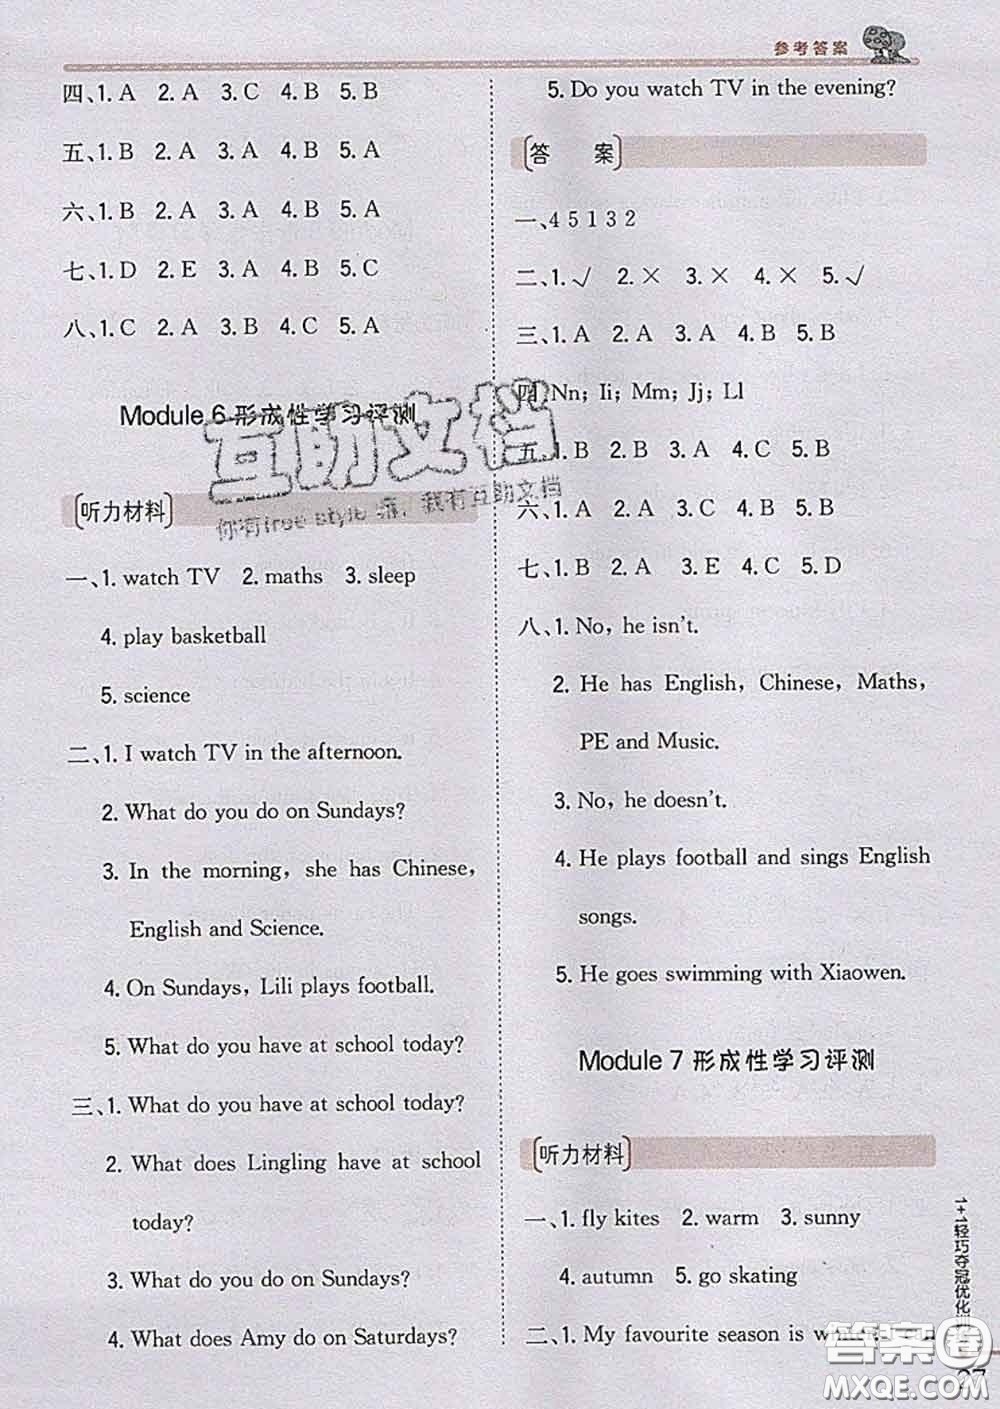 参考答案
四、1. A 2. A 3. C 4. B 5. B
五、1. B 2. A 3. A 4. B 5. A
六、1. B 2. A 3. A 4. B 5. A
七、1. D 2. E 3. A 4. B 5. C
八、1. C 2. A 3. B 4. C 5. A
Module 6 形成性学习评测
听力材料
一、1. watch TV 2. maths 3. sleep
4. play basketball
5. science
二、1. I watch TV in the afternoon.
2. What do you do on Sundays?
3. In the morning, she has Chinese,
English and Science.
4. On Sundays, Lili plays football.
5. What do you have at school today?
三、1. What do you have at school today?
2. What does Lingling have at school
today?
3. What do you do on Sundays?
4. What does Amy do on Saturdays?
5. Do you watch TV in the evening?
答 案
一、4 5 1 3 2
二、1. √ 2. × 3. × 4. × 5. √
三、1. A 2. A 3. A 4. B 5. B
四、Nn; Ii; Mm; Jj; Ll
五、1. B 2. B 3. A 4. C 5. B
六、1. A 2. A 3. C 4. B 5. B
七、1. B 2. A 3. E 4. C 5. D
八、1. No, he isn't.
2. He has English, Chinese, Maths,
PE and Music.
3. No, he doesn't.
4. He plays football and sings English
songs.
5. He goes swimming with Xiaowen.
Module 7 形成性学习评测
听力材料
一、1. fly kites 2. warm 3. sunny
4. autumn 5. go skating
二、1. My favourite season is
1+1轻巧夺冠优化
27
互助文档
你有free style 嘛，我有互助文档
答案圈
MXQE.COM